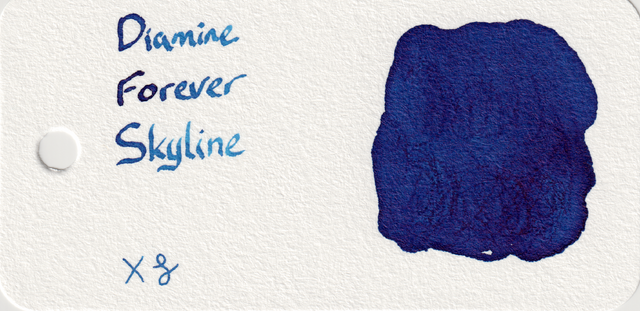 Diamine
Forever
Skyline